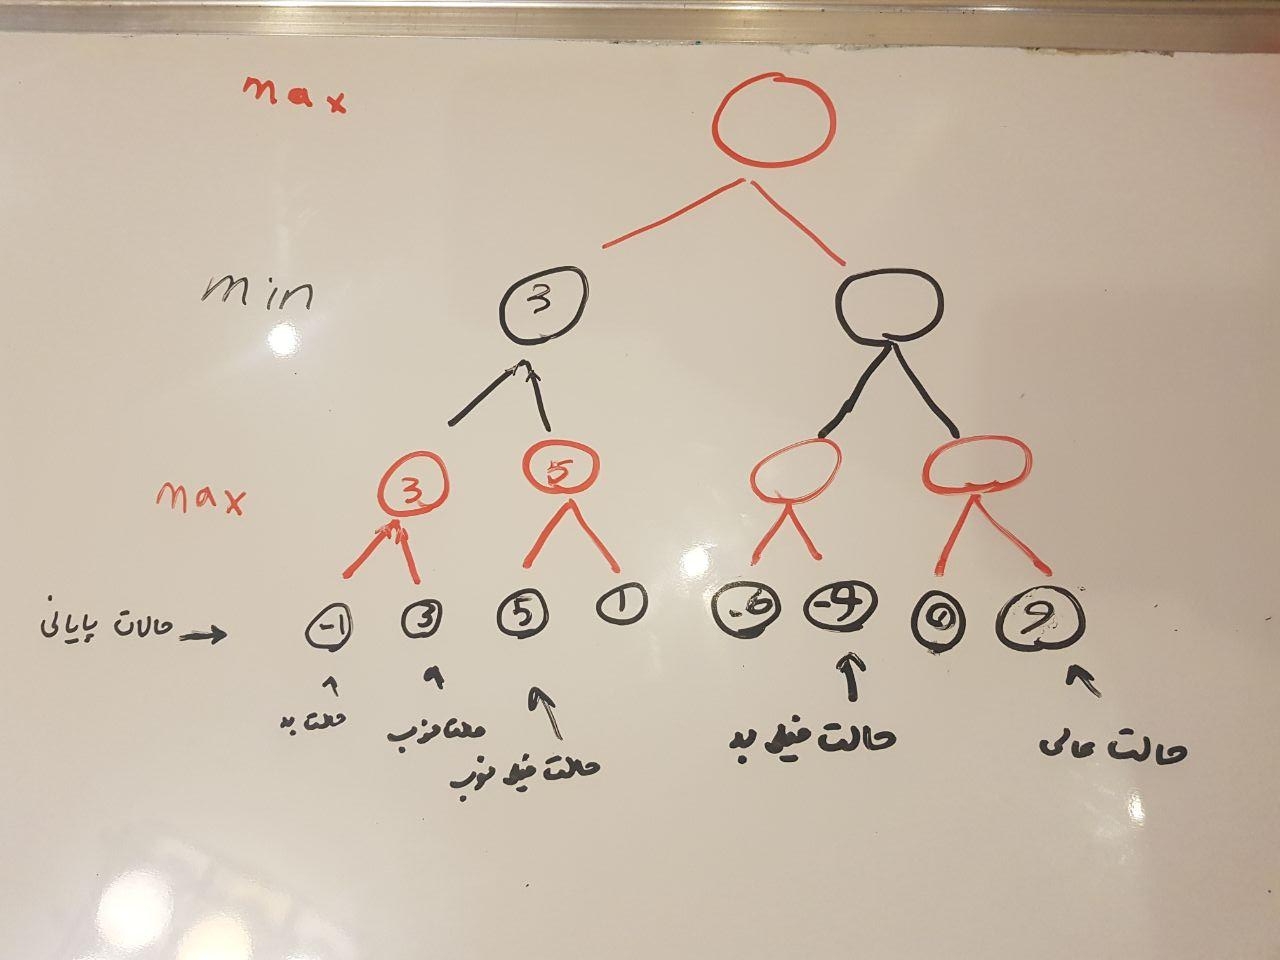 max
min
3
max
3 5
حالات پایانی
-1 3 5 1 -6 -4 9
حالت بد
حالت خوب
حالت خیلی خوب
حالت خیلی بد
حالت عالی